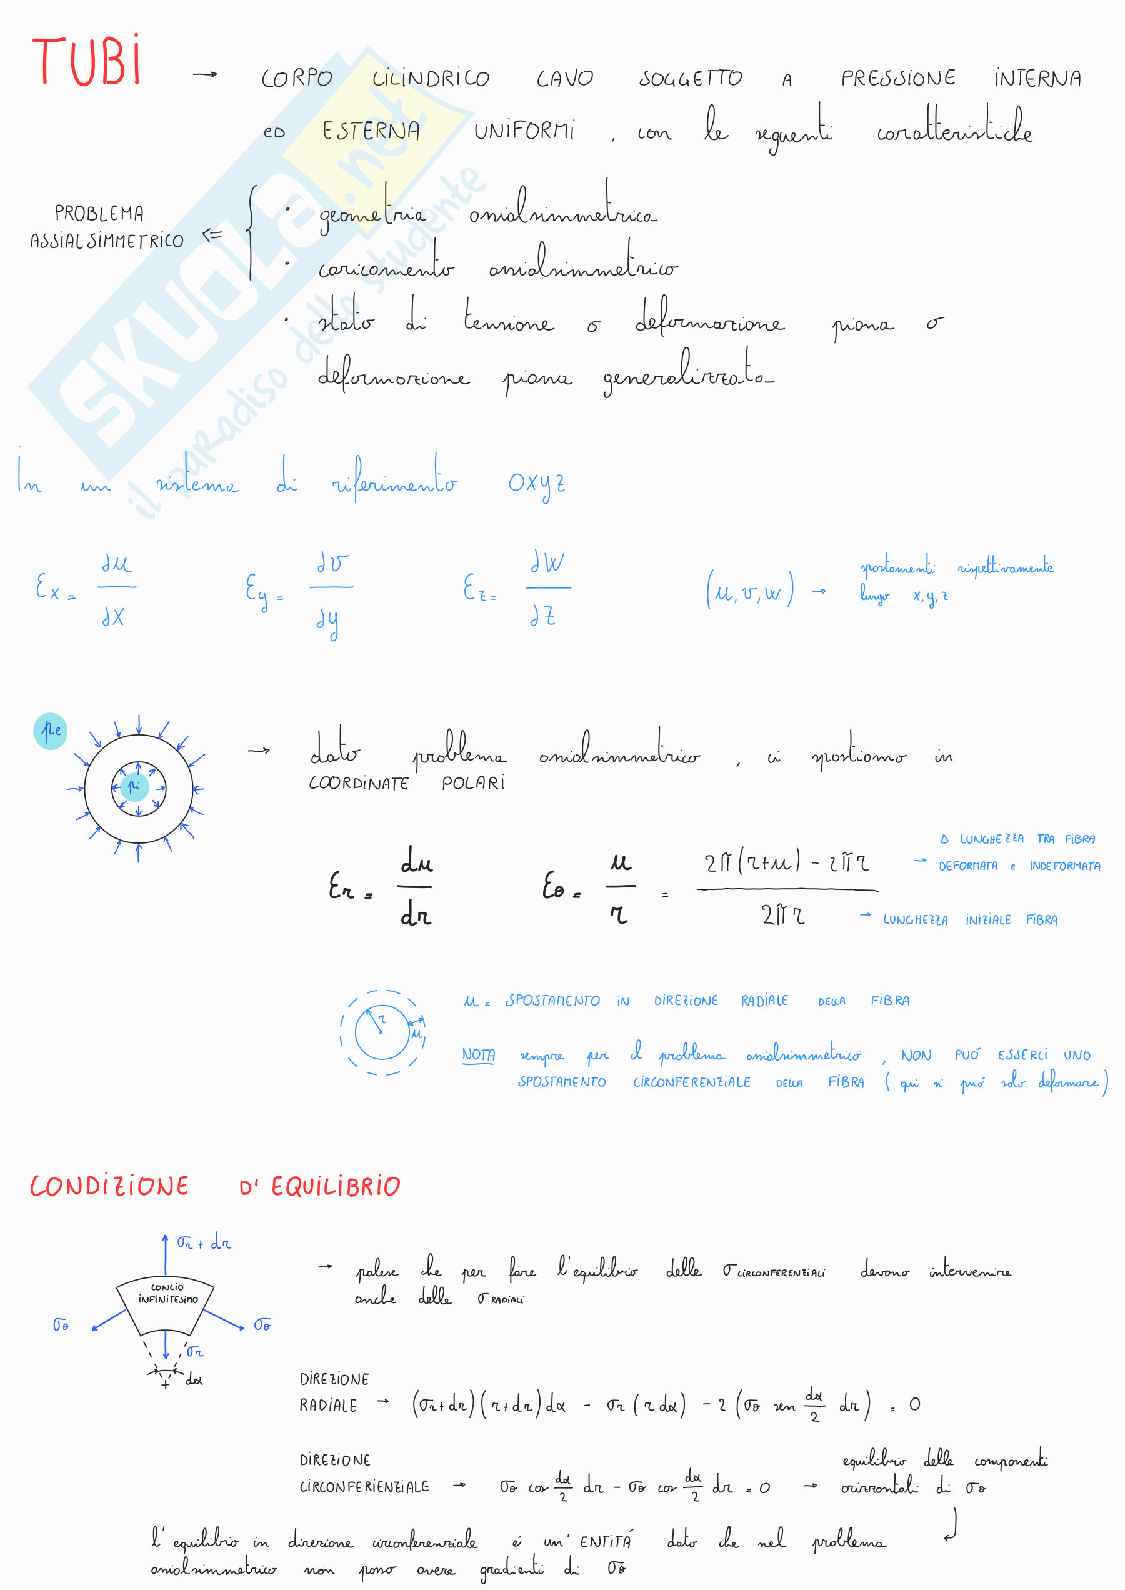 TUBI → CORPO CILINDRICO CAVO SOGGETTO A PRESSIONE INTERNA
ED ESTERNA UNIFORMI, con le seguenti caratteristiche
PROBLEMA
ASSIALSIMMETRICO <=
· geometria assialsimmetrica
· caricamento assialsimmetrico
· stato di tensione o deformazione piana o
deformazione piana generalizzata
SKUOLA.net
il paradiso dello studente
In un sistema di riferimento OXYZ
Ɛx = ∂u/∂x Ɛy = ∂v/∂y Ɛz = ∂w/∂z (u,v,w) → spostamenti rispettivamente
lungo x,y,z
pe
pi
→ dato problema assialsimmetrico, ci spostiamo in
COORDINATE POLARI
Ɛr = du/dr Ɛθ = u/r = (2π(r+u) - 2πr)/(2πr)
→ Δ LUNGHEZZA TRA FIBRA
DEFORMATA e INDEFORMATA
→ LUNGHEZZA INIZIALE FIBRA
r
u
u = SPOSTAMENTO IN DIREZIONE RADIALE DELLA FIBRA
NOTA sempre per il problema assialsimmetrico, NON PUÓ ESSERCI UNO
SPOSTAMENTO CIRCONFERENZIALE DELLA FIBRA (qui si puó solo deformare)
CONDIZIONE D'EQUILIBRIO
σr + dr
CONCIO
INFINITESIMO
σθ σθ
σr
dα
→ palese che per fare l'equilibrio delle σ CIRCONFERENZIALI devono intervenire
anche delle σ RADIALI
DIREZIONE
RADIALE → (σr+dr)(r+dr)dα - σr(r dα) - 2(σθ sen dα/2 dr) = 0
DIREZIONE
CIRCONFERIENZIALE → σθ cos dα/2 dr - σθ cos dα/2 dr = 0 → equilibrio delle componenti
orizzontali di σθ
l'equilibrio in direzione circonferenziale é un'ENTITÁ dato che nel problema
assialsimmetrico non posso avere gradienti di σθ